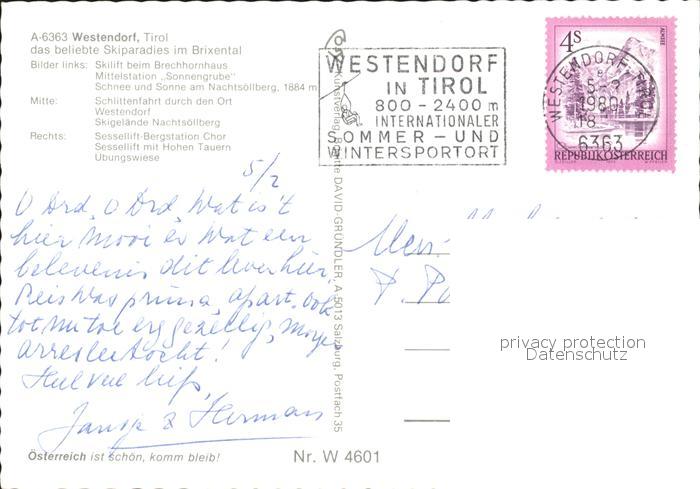 A-6363 Westendorf, Tirol
das beliebte Skiparadies im Brixental
Bilder links: Skilift beim Brechhornhaus
Mittelstation „Sonnengrube"
Schnee und Sonne am Nachtsöllberg, 1884 m
Mitte: Schlittenfahrt durch den Ort
Westendorf
Skigelände Nachtsöllberg
Rechts: Sessellift-Bergstation Chor
Sessellift mit Hohen Tauern
Übungswiese
WESTENDORF
IN TIROL
800 - 2400 m
INTERNATIONALER
SOMMER - UND
WINTERSPORTORT
4s
ALMSEE
WESTENDORF TIROL
1980
18
6363
REPUBLIK ÖSTERREICH
5/2
O Ord, O Ord, Wat is 't
hier mooi en wat een
belevenis dit
Reis was prima, apart. Ook
tot nu toe erg gezellig, morgen
arresleetocht!
Heel veel liefs,
& Herman
Kunstverlag DAVID-GRÜNDLER, A-5013 Salzburg, Postfach 35
P.
privacy protection
Datenschutz
Österreich ist schön, komm bleib!
Nr. W 4601